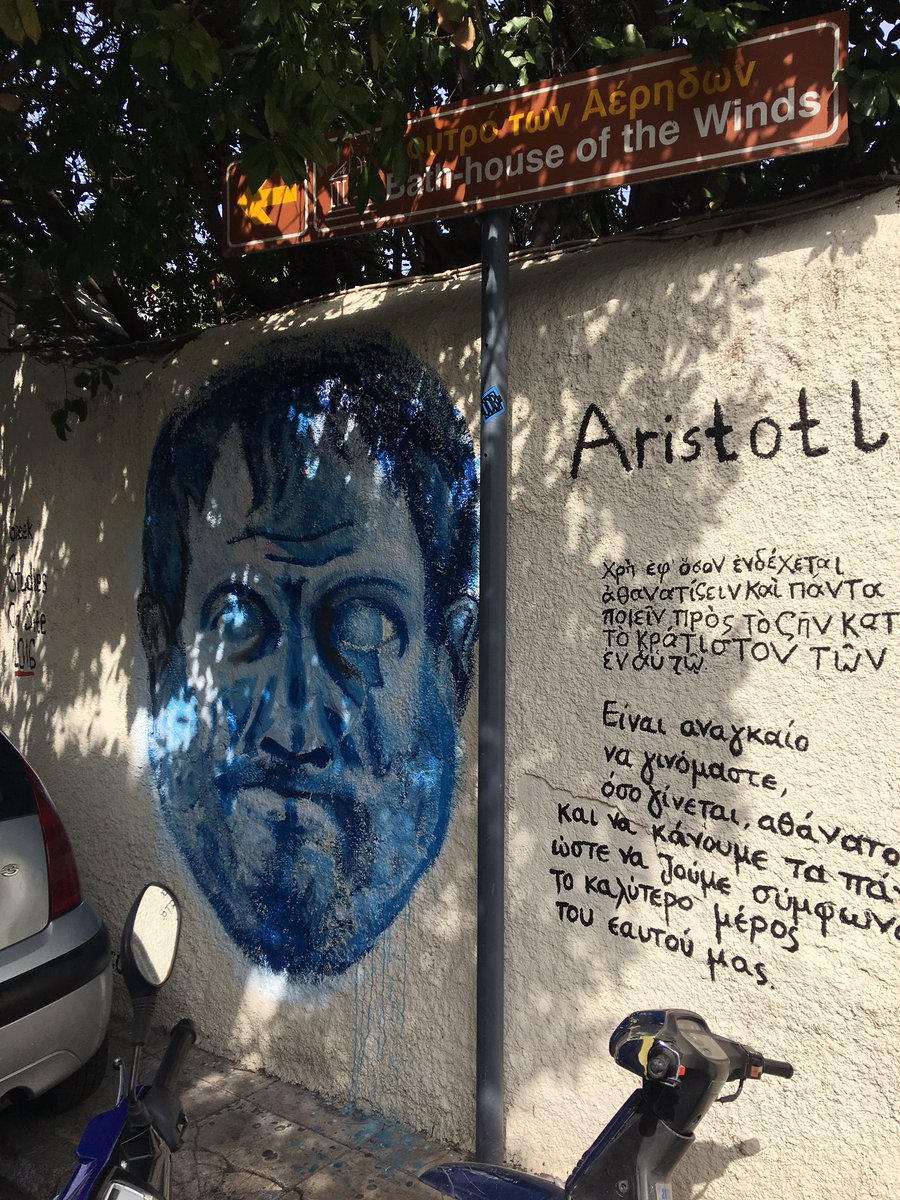 των Αέρηδων
Bath-house of the Winds
Aristotl
Studies
2016
χρὴ ἐφ ὅσον ἐνδέχεται
ἀθανατίζειν καὶ πάντα
ποιεῖν πρὸς τὸ ζῆν κατ
τὸ κράτιστον τῶν
ἐν αὑτῷ.
Είναι αναγκαίο
να γινόμαστε,
όσο γίνεται, αθάνατο
και να κάνουμε τα πάν
ώστε να ζούμε σύμφωνα
το καλύτερο μέρος
του εαυτού μας